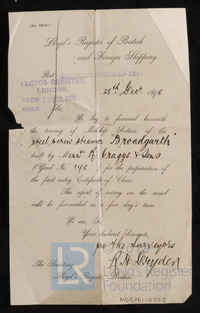 (No. 1804.)
Lloyd's Register of British
and Foreign Shipping.
Port
LLOYDS REGISTER
LONDON.
28th Decr 1898
Sir,
We beg to forward herewith
the tracing of Midship Section of the
steel screw steamer "Broadgarth"
built by Messrs R. Craggs & Sons
Yard No 148 for the preparation of
the first entry Certificate of Class.
The report of survey on the vessel
will be forwarded in a few day's time.
We are, Sir,
Your obedient Servants,
for The Surveyors
The Secretary
Lloyd's Register, London.
LR
Lloyd's Register
Foundation